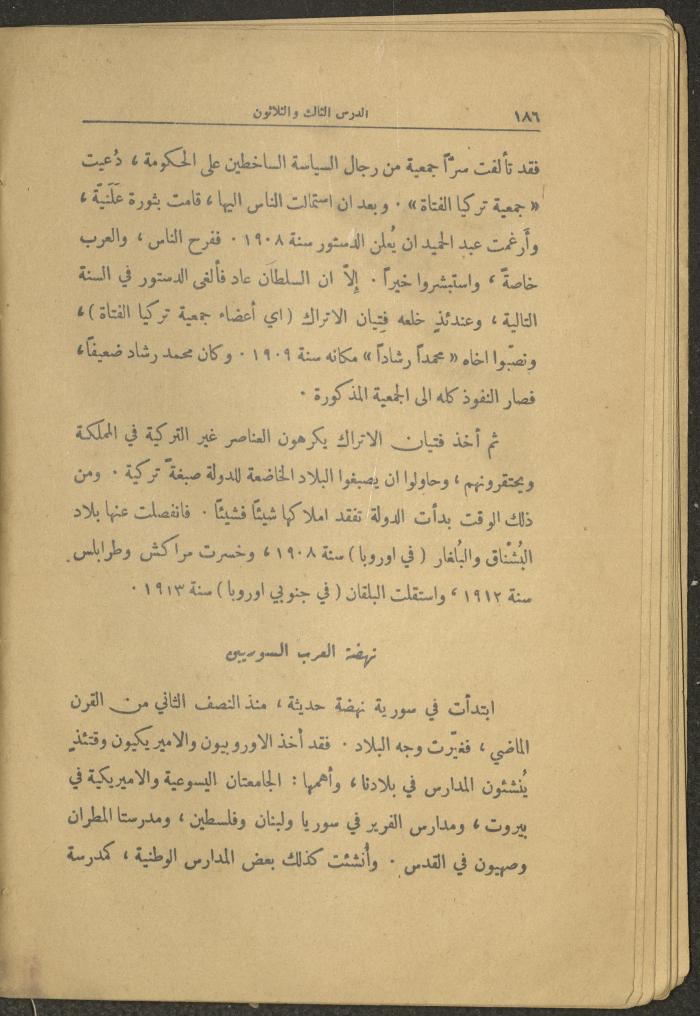 ١٨٦
الدرس الثالث والثلاثون
فقد تألفت سرّاً جمعية من رجال السياسة الساخطين على الحكومة ، دُعيت
« جمعية تركيا الفتاة » . وبعد ان استمالت الناس اليها ، قامت بثورة عَلَنيّة ،
وأرغمت عبد الحميد ان يُعلن الدستور سنة ١٩٠٨ . ففرح الناس ، والعرب
خاصةً ، واستبشروا خيراً . إلاّ ان السلطان عاد فألغى الدستور في السنة
التالية ، وعندئذٍ خلعه فتِيان الاتراك (اي أعضاء جمعية تركيا الفتاة) ،
ونصّبوا اخاه « محمداً رشاداً » مكانه سنة ١٩٠٩ . وكان محمد رشاد ضعيفاً ،
فصار النفوذ كله الى الجمعية المذكورة .
ثم أخذ فتيان الاتراك يكرهون العناصر غير التركية في المملكة
ويحتقرونهم ، وحاولوا ان يصبغوا البلاد الخاضعة للدولة صبغةً تركية . ومن
ذلك الوقت بدأت الدولة تفقد املاكها شيئاً فشيئاً . فانفصلت عنها بلاد
البُشْناق والبُلغار (في اوروبا) سنة ١٩٠٨ ، وخسرت مراكش وطرابلس
سنة ١٩١٢ ، واستقلت البلقان (في جنوبي اوروبا) سنة ١٩١٣ .
نهضة العرب السوريين
ابتدأت في سورية نهضة حديثة ، منذ النصف الثاني من القرن
الماضي ، فغيّرت وجه البلاد . فقد أخذ الاوروبيون والاميريكيون وقتئذٍ
يُنشئون المدارس في بلادنا ، وأهمها : الجامعتان اليسوعية والاميريكية في
بيروت ، ومدارس الفرير في سوريا ولبنان وفلسطين ، ومدرستا المطران
وصهيون في القدس . وأُنشئت كذلك بعض المدارس الوطنية ، كمدرسة